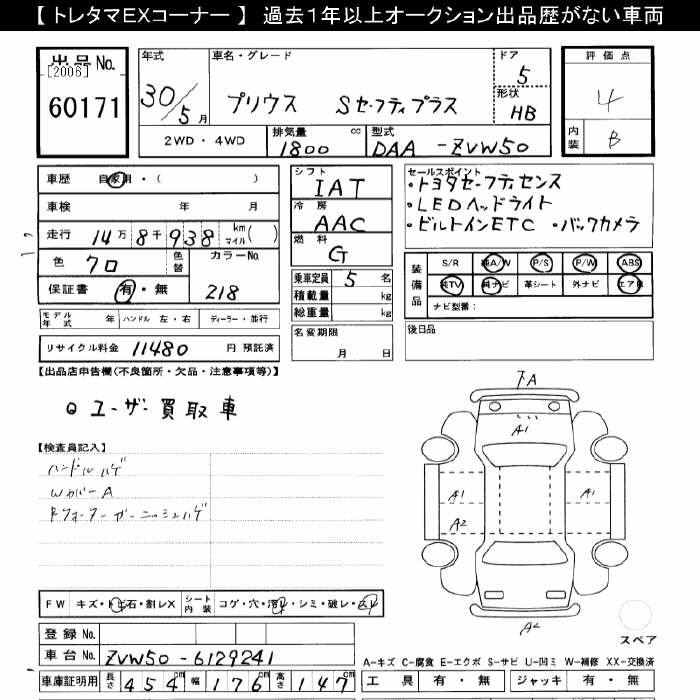 【 トレタマEXコーナー 】 過去1年以上オークション出品歴がない車両
出品No.
[2006]
60171
年式
30/5月
車名・グレード
プリウス Sセーフティプラス
ドア
5
形状
HB
2WD・4WD
排気量
1800 cc
型式
DAA-ZVW50
評価点
4
内装
B
車歴 自家用・( )
車検 年 月
走行 14万8千938 km マイル( )
色 クロ
色替
カラーNo.
218
保証書 有・無
シフト
IAT
冷房
AAC
燃料
G
乗車定員 5 名
積載量 kg
総重量 kg
セールスポイント
・トヨタセーフティセンス
・LEDヘッドライト
・ビルトインETC ・バックカメラ
装備品
S/R 純A/W P/S P/W ABS
純TV 純ナビ 革シート 外ナビ エアB
ナビ型番:
モデル年式 年 ハンドル 左・右 ディーラー・並行
リサイクル料金 11480 円 預託済
名変期限
月 日
後日品
【出品店申告欄(不良箇所・欠品・注意事項等)】
ユーザー買取車
【検査員記入】
ハンドルハゲ
WカバーA
Rクォーターガーニッシュハゲ
下A
A1
A1
A1
A2
A2
スペア
FW キズ・トビ石・割レX
シート内装
コゲ・穴・・シミ・破レ・
登録No.
車台No. ZVW50-6129241
車庫証明用 長さ 454cm 幅 176cm 高さ 147cm
A-キズ C-腐食 E-エクボ S-サビ U-凹ミ W-補修 XX-交換済
工具 有・無 ジャッキ 有・無